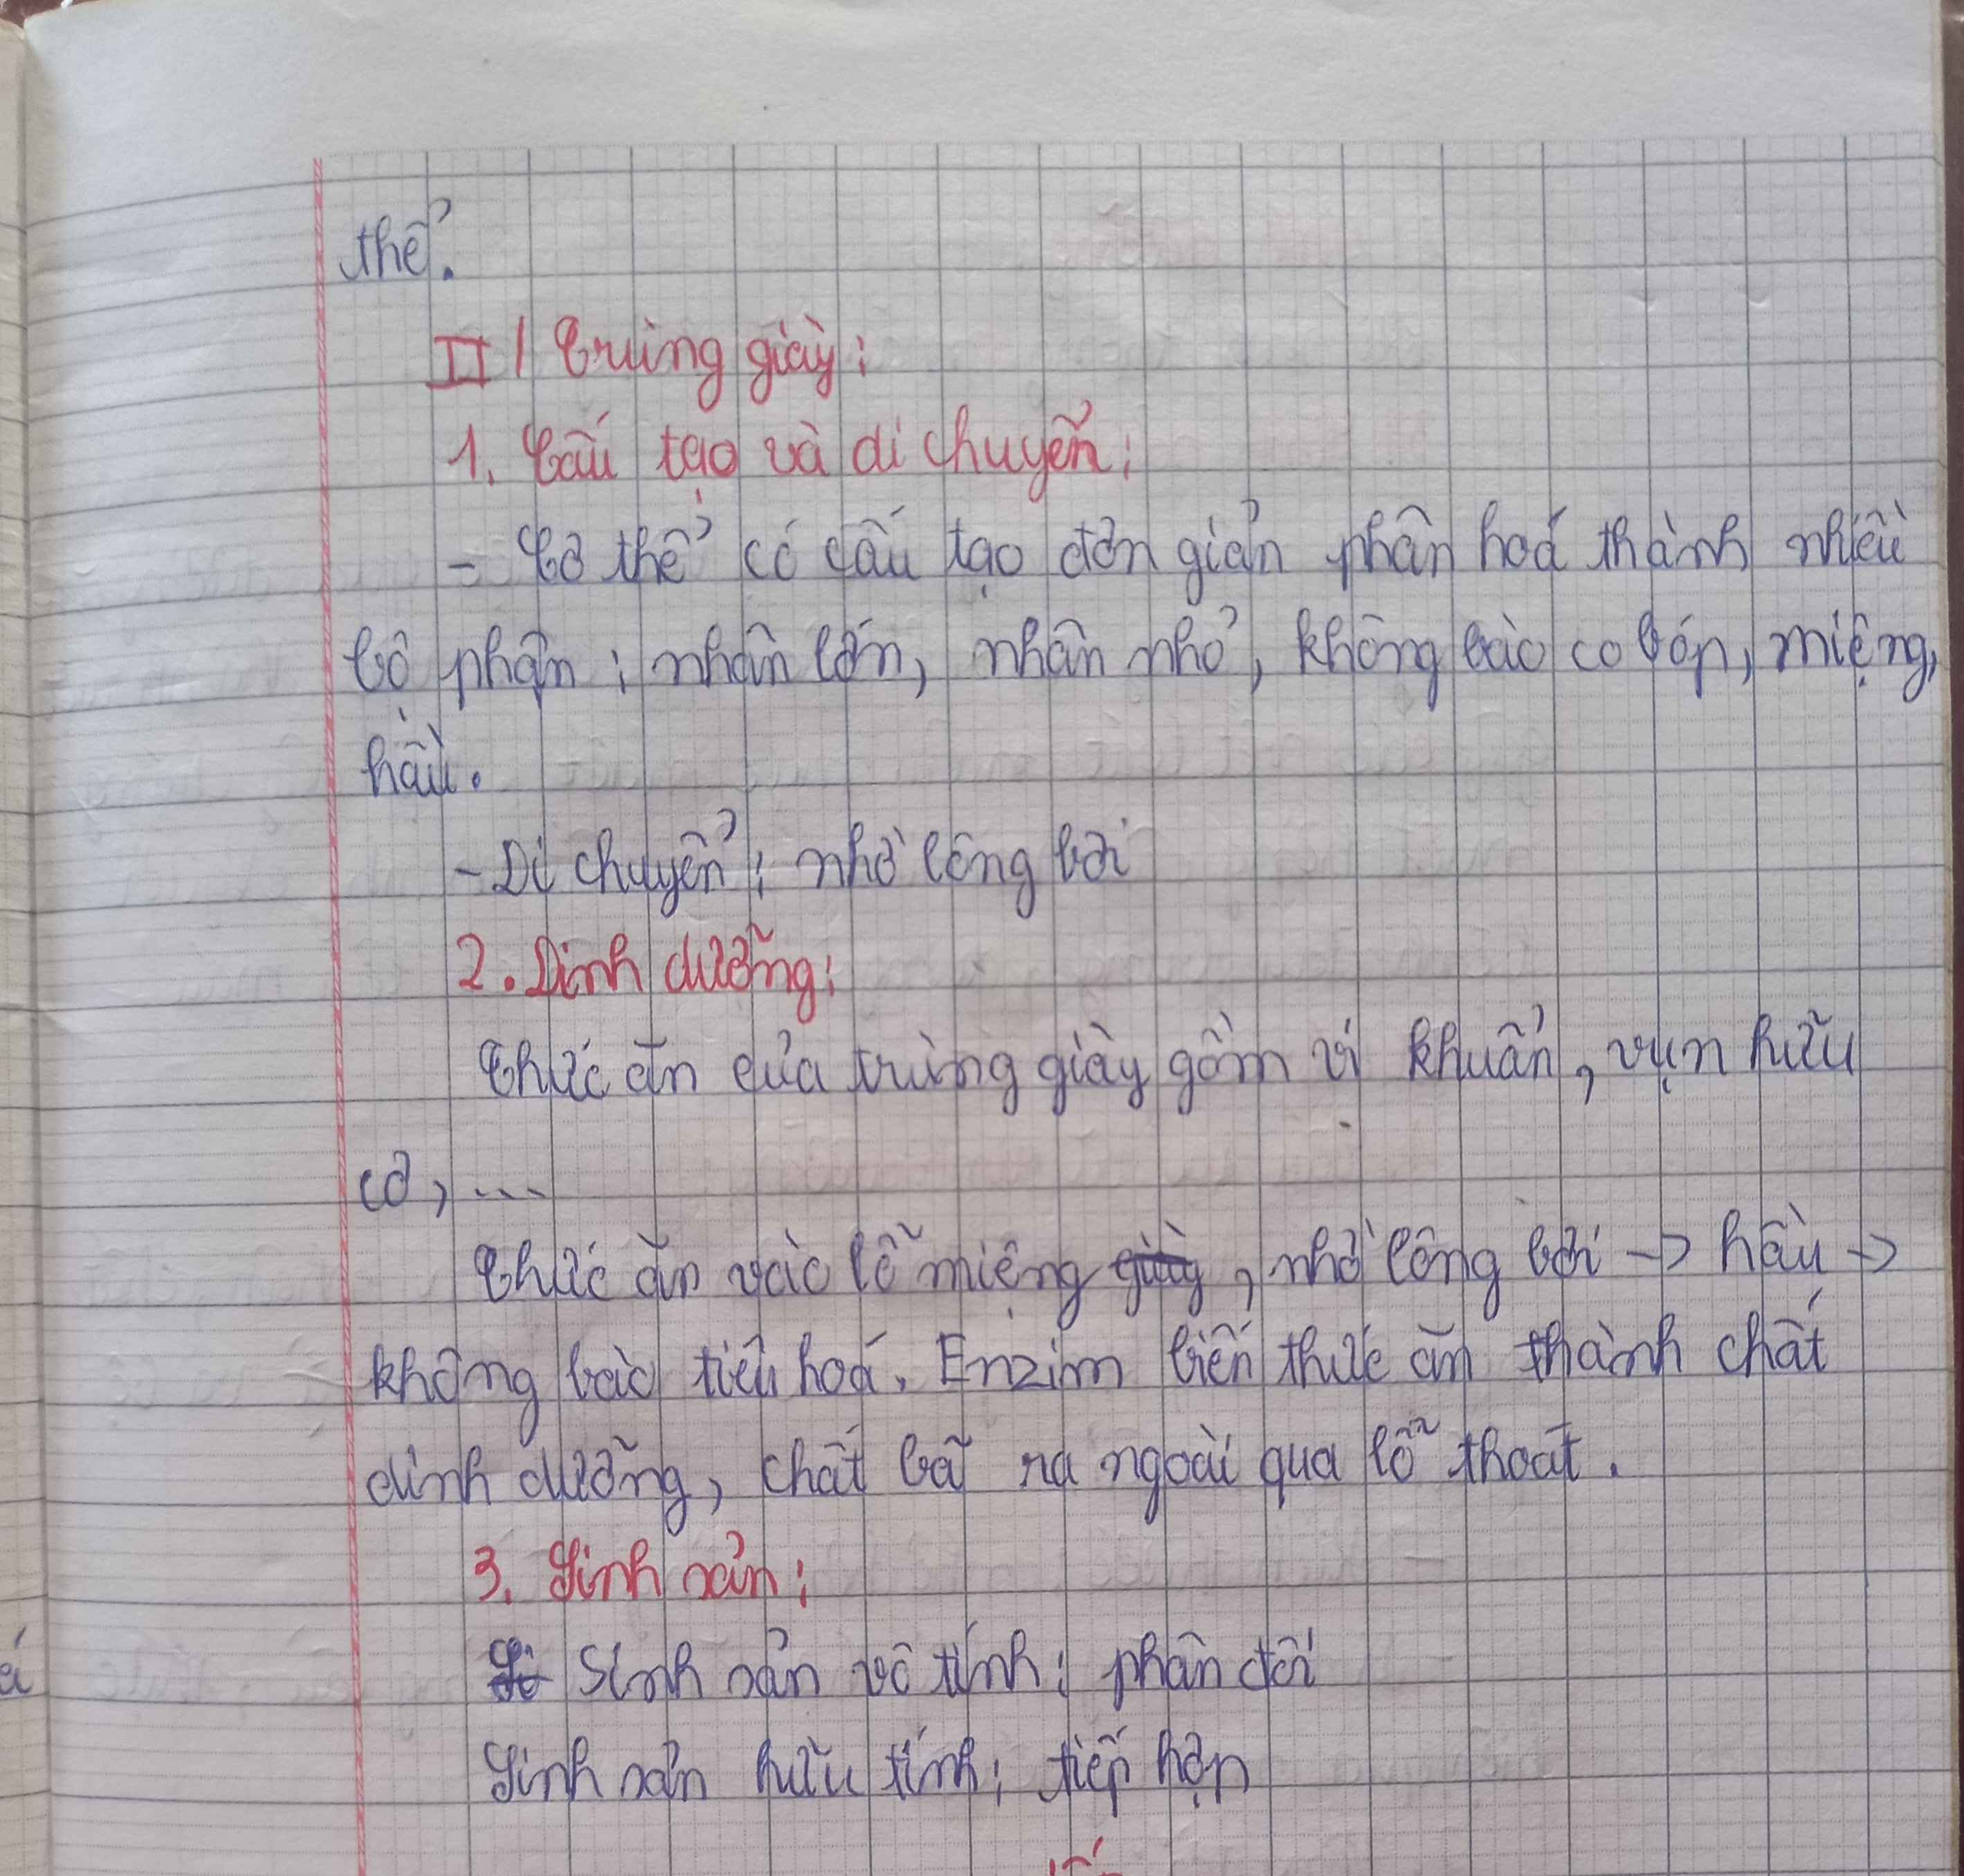 thể.
II/ Trùng giày:
1. Cấu tạo và di chuyển:
- Cơ thể có cấu tạo đơn giản phân hoá thành nhiều
bộ phận: nhân lớn, nhân nhỏ, không bào co bóp, miệng,
hầu.
- Di chuyển: nhờ lông bơi
2. Dinh dưỡng:
Thức ăn của trùng giày gồm vi khuẩn, vụn hữu
cơ, ...
Thức ăn vào lỗ miệng, nhờ lông bơi -> hầu ->
không bào tiêu hoá. Enzim biến thức ăn thành chất
dinh dưỡng, chất bã ra ngoài qua lỗ thoát.
3. Sinh sản:
Sinh sản vô tính: phân đôi
Sinh sản hữu tính: tiếp hợp